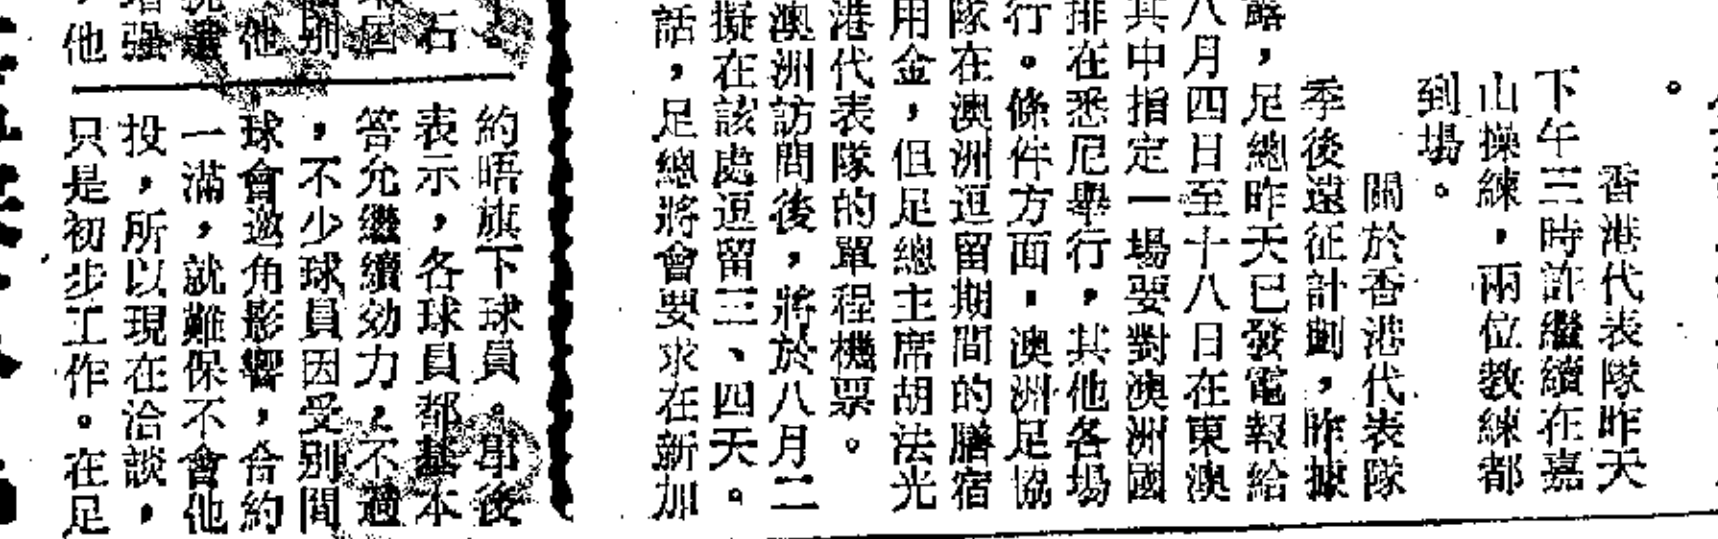 香港代表隊昨天
下午三時許繼續在嘉
山操練，兩位教練都
到場。
關於香港代表隊
季後遠征計劃，昨據
露，足總昨天已發電報給
八月四日至十八日在東澳
其中指定一場要對澳洲國
排在悉尼舉行，其他各場
行。條件方面，澳洲足協
隊在澳洲逗留期間的膳宿
用金，但足總主席胡法光
港代表隊的單程機票。
澳洲訪問後，將於八月二
擬在該處逗留三、四天。
話，足總將會要求在新加
約晤旗下球員。畢後
表示，各球員都基本
答允繼續効力，不過
，不少球員因受別間
球會邀角影響，合約
一滿，就難保不會他
投，所以現在洽談，
只是初步工作。在足
石
他
別
增强
他